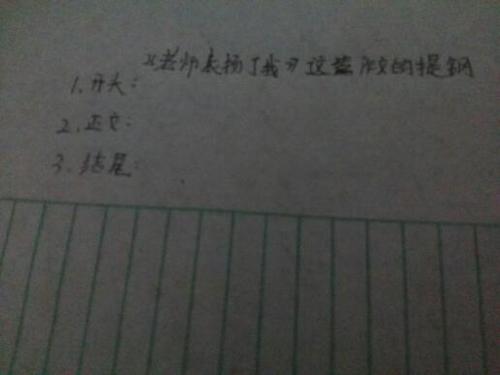 《老师表扬了我》这篇作文的提钢
1.开头：
2.正文：
3.结尾：